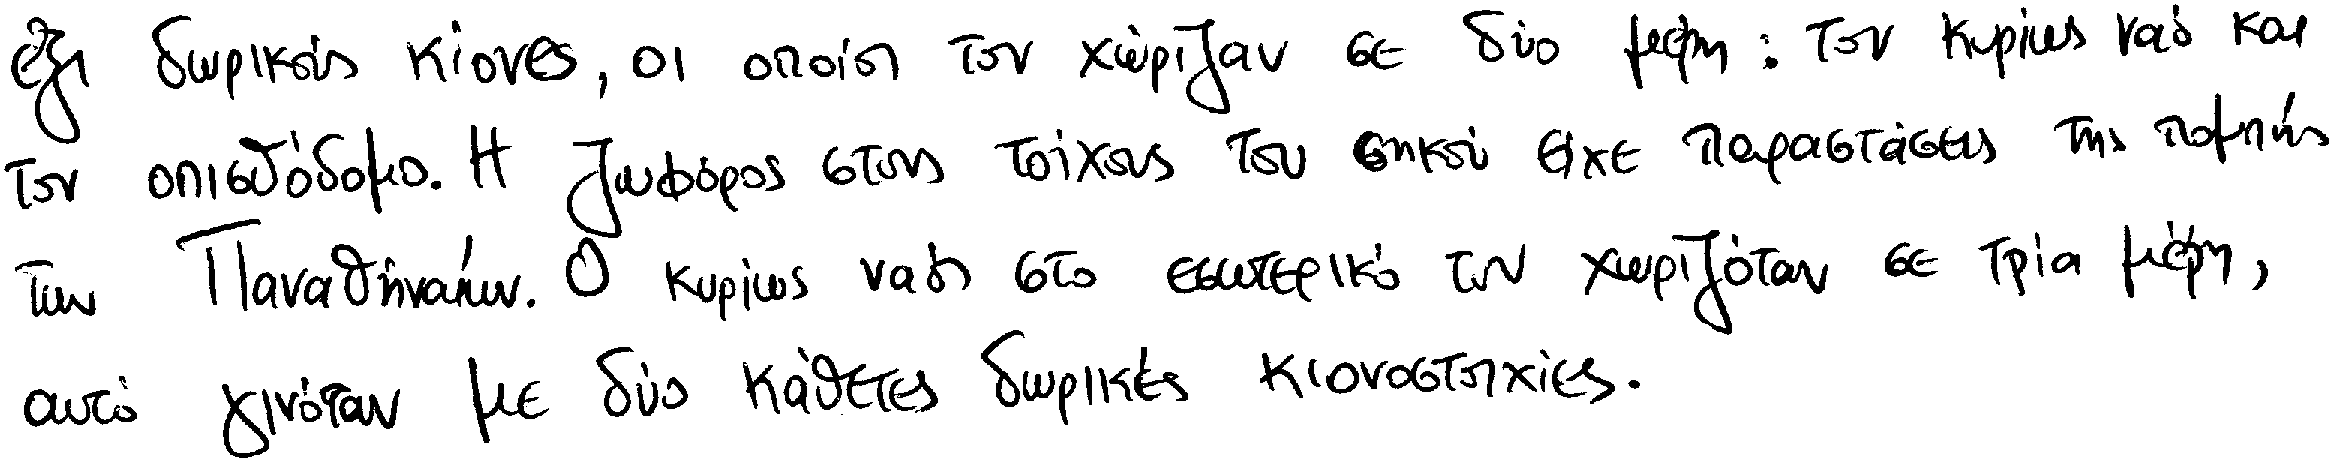 έξι δωρικούς κίονες, οι οποίοι τον χώριζαν σε δύο μέρη: τον κυρίως ναό και
τον οπισθόδομο. Η ζωφόρος στους τοίχους του σηκού είχε παραστάσεις της πομπής
των Παναθηναίων. Ο κυρίως ναός στο εσωτερικό του χωριζόταν σε τρία μέρη,
αυτό γινόταν με δύο κάθετες δωρικές κιονοστοιχίες.